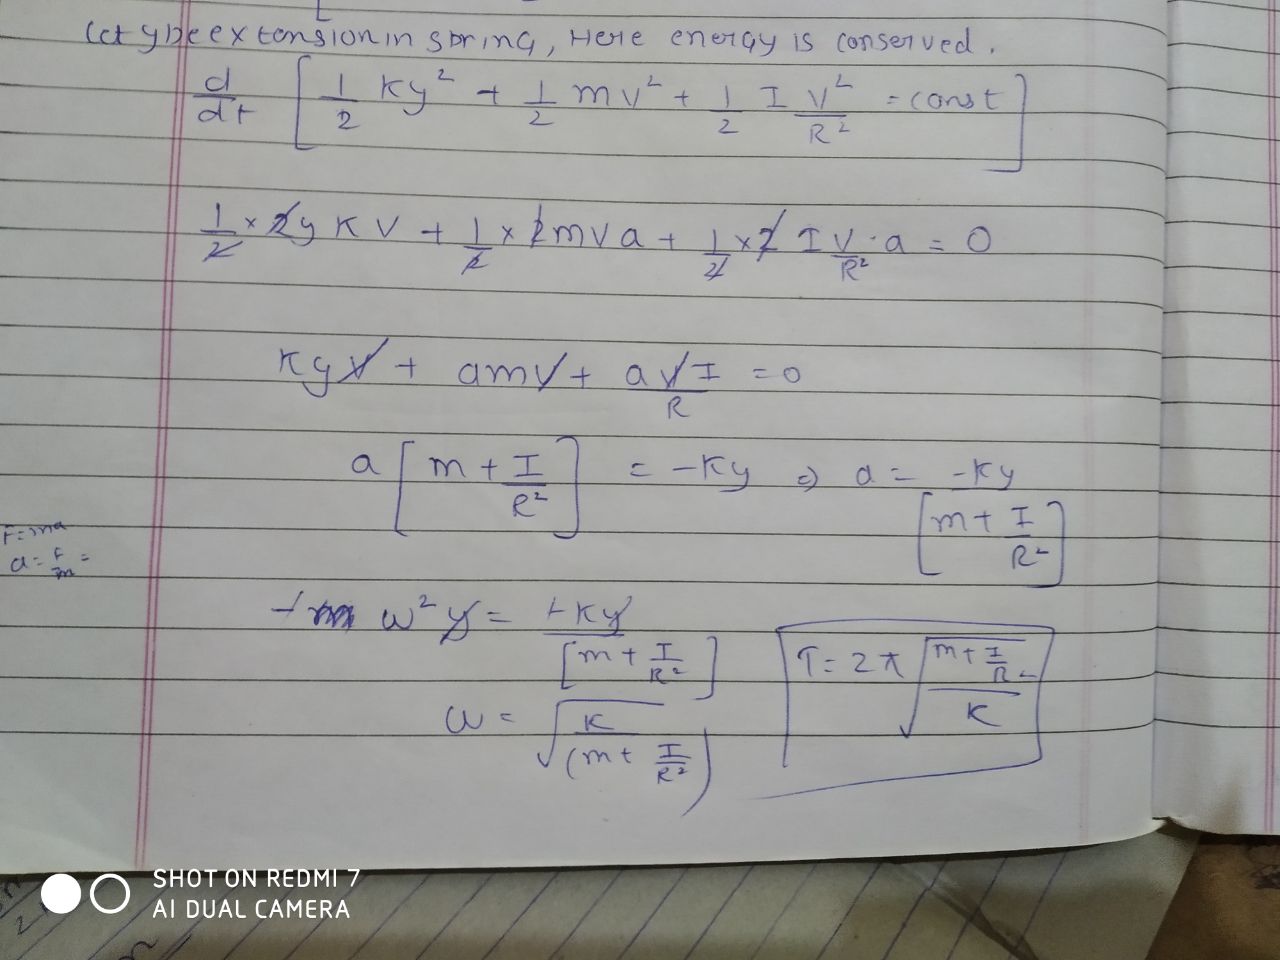 Let y be extension in spring, Here energy is conserved.
d/dt [ 1/2 Ky² + 1/2 mv² + 1/2 I V²/R² = const ]
1/2 × 2y K V + 1/2 × 2 m V a + 1/2 × 2 I V/R² · a = 0
KyV + amV + aVI/R = 0
a [ m + I/R² ] = -Ky ⇒ a = -Ky/[ m + I/R² ]
F = ma
a = F/m =
- ω² y = -Ky/[ m + I/R² ]
T = 2π √( (m + I/R²)/K )
ω = √( K/(m + I/R²) )
SHOT ON REDMI 7
AI DUAL CAMERA